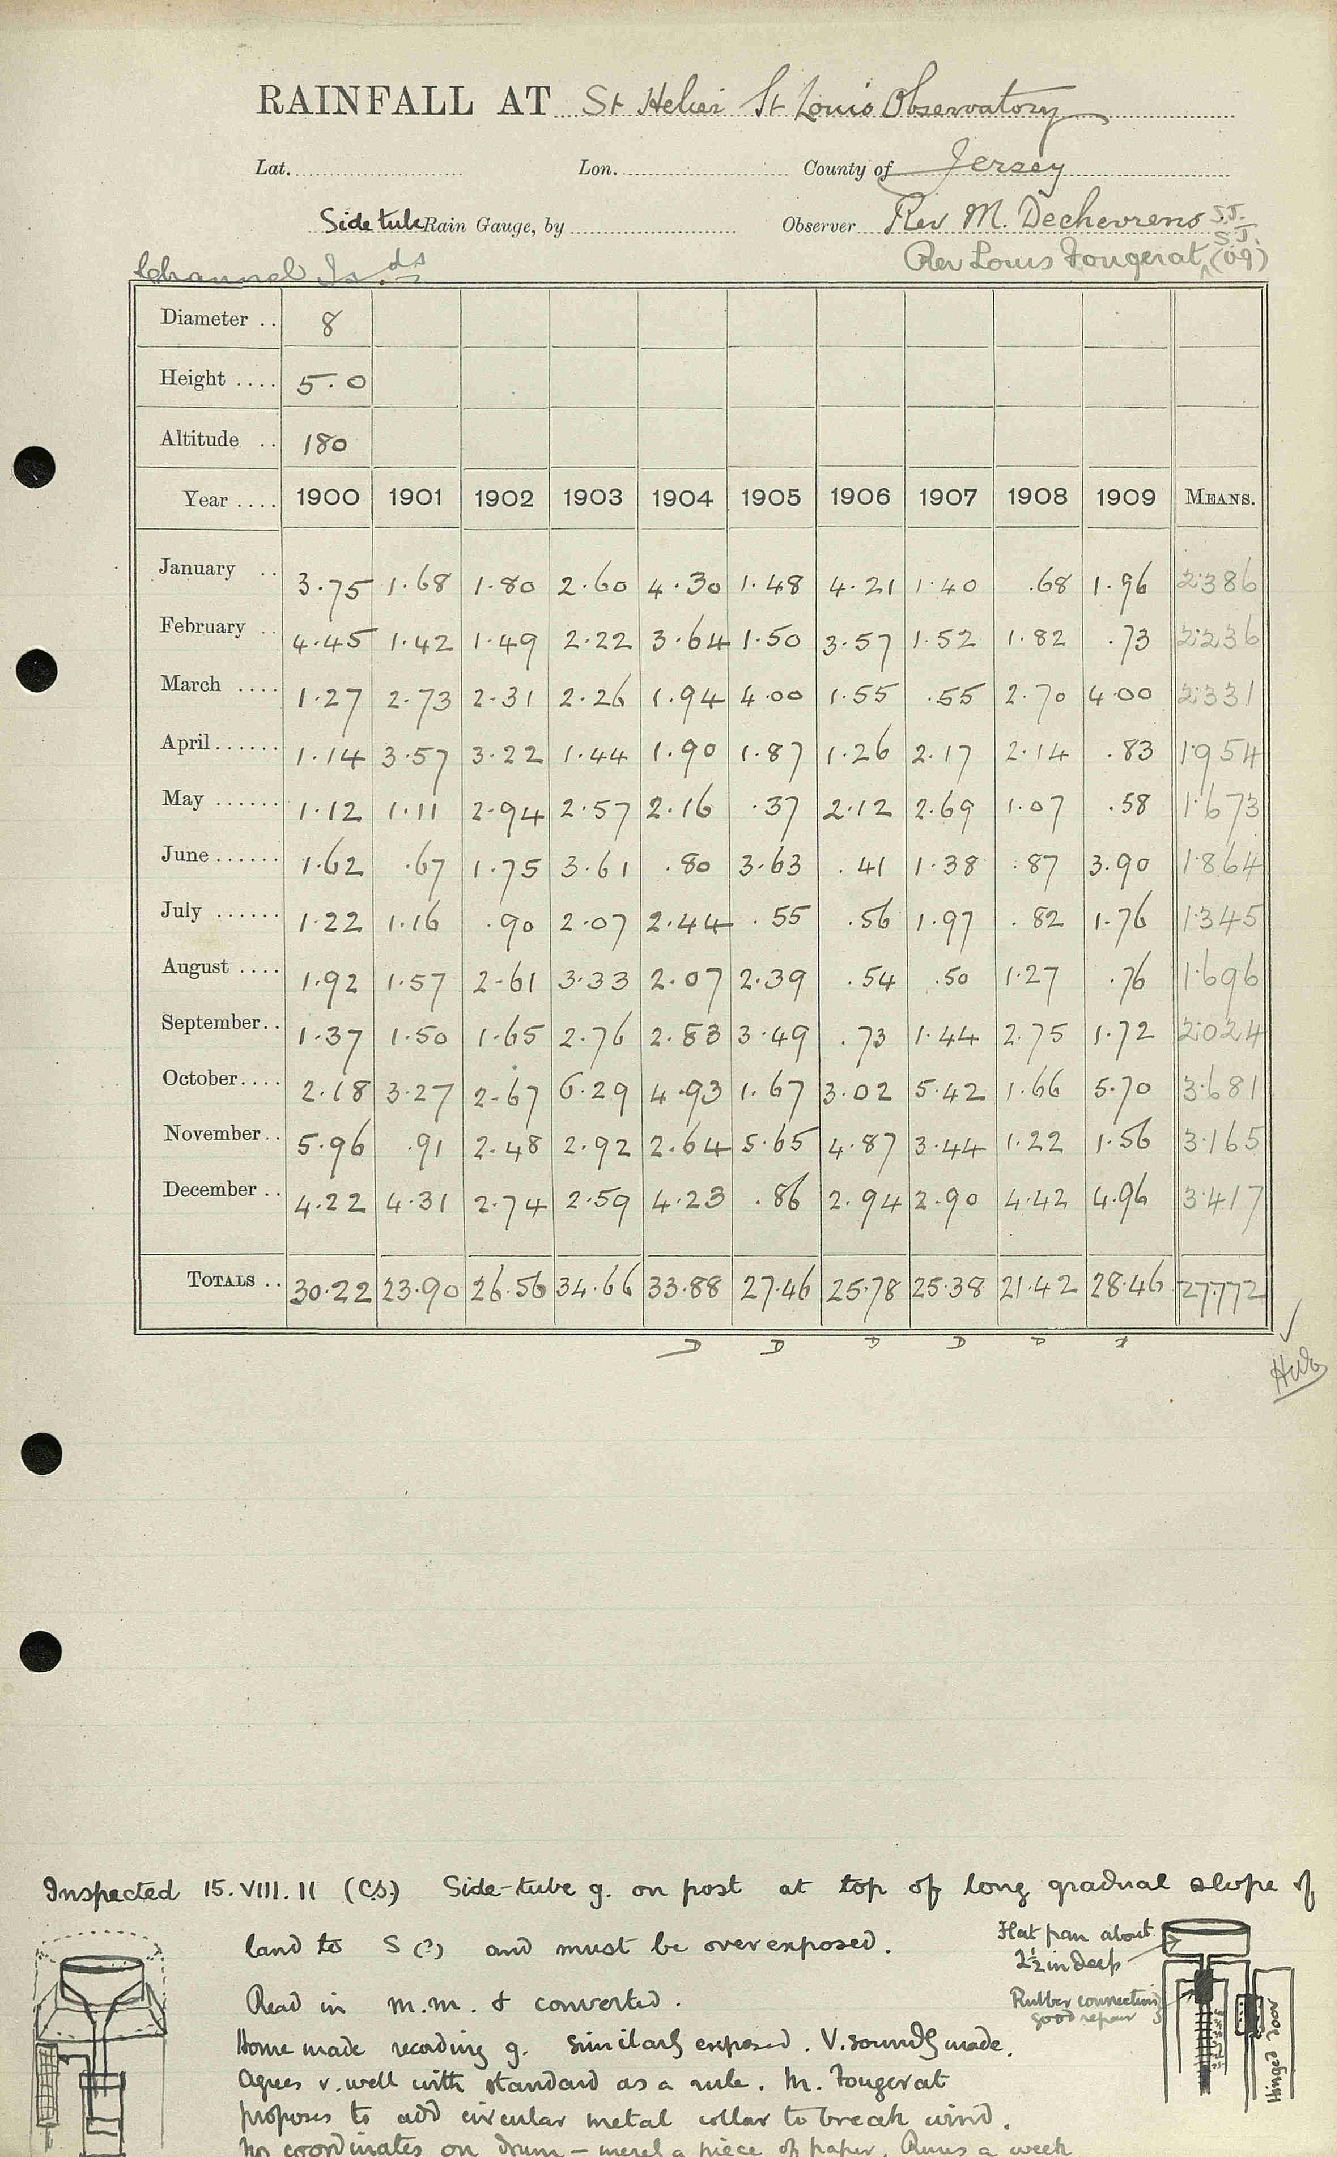 RAINFALL AT St Helier St Louis Observatory
Lat. Lon. County of Jersey
Side tube Rain Gauge, by Observer Rev M. Dechevrens S.J.
Channel Is.ds Rev Louis Fougerat S.J. (09)
Diameter .. 8
Height .... 5.0
Altitude .. 180
Year .... 1900 1901 1902 1903 1904 1905 1906 1907 1908 1909 MEANS.
January .. 3.75 1.68 1.80 2.60 4.30 1.48 4.21 1.40 .68 1.96 2.386
February .. 4.45 1.42 1.49 2.22 3.64 1.50 3.57 1.52 1.82 .73 2.236
March .... 1.27 2.73 2.31 2.26 1.94 4.00 1.55 .55 2.70 4.00 2.331
April ...... 1.14 3.57 3.22 1.44 1.90 1.87 1.26 2.17 2.14 .83 1.954
May ...... 1.12 1.11 2.94 2.57 2.16 .37 2.12 2.69 1.07 .58 1.673
June ...... 1.62 .67 1.75 3.61 .80 3.63 .41 1.38 .87 3.90 1.864
July ...... 1.22 1.16 .90 2.07 2.44 .55 .56 1.97 .82 1.76 1.345
August .... 1.92 1.57 2.61 3.33 2.07 2.39 .54 .50 1.27 .76 1.696
September .. 1.37 1.50 1.65 2.76 2.83 3.49 .73 1.44 2.75 1.72 2.024
October .... 2.18 3.27 2.67 6.29 4.93 1.67 3.02 5.42 1.66 5.70 3.681
November .. 5.96 .91 2.48 2.92 2.64 5.65 4.87 3.44 1.22 1.56 3.165
December .. 4.22 4.31 2.74 2.59 4.23 .86 2.94 2.90 4.42 4.96 3.417
TOTALS .. 30.22 23.90 26.56 34.66 33.88 27.46 25.78 25.38 21.42 28.46 27.772
D D D D D
Inspected 15.VIII.11 (C.S.) Side-tube g. on post at top of long gradual slope of
land to S (?) and must be over exposed.
Flat pan about
2½ in deep
Read in m.m. & converted.
Rubber connection
good repair
Home made recording g. similarly exposed. V. soundly made.
Agrees v. well with standard as a rule. M. Fougerat
Hinged Door
proposes to add circular metal collar to break wind.
No coordinates on drum – merely a piece of paper. Runs a week